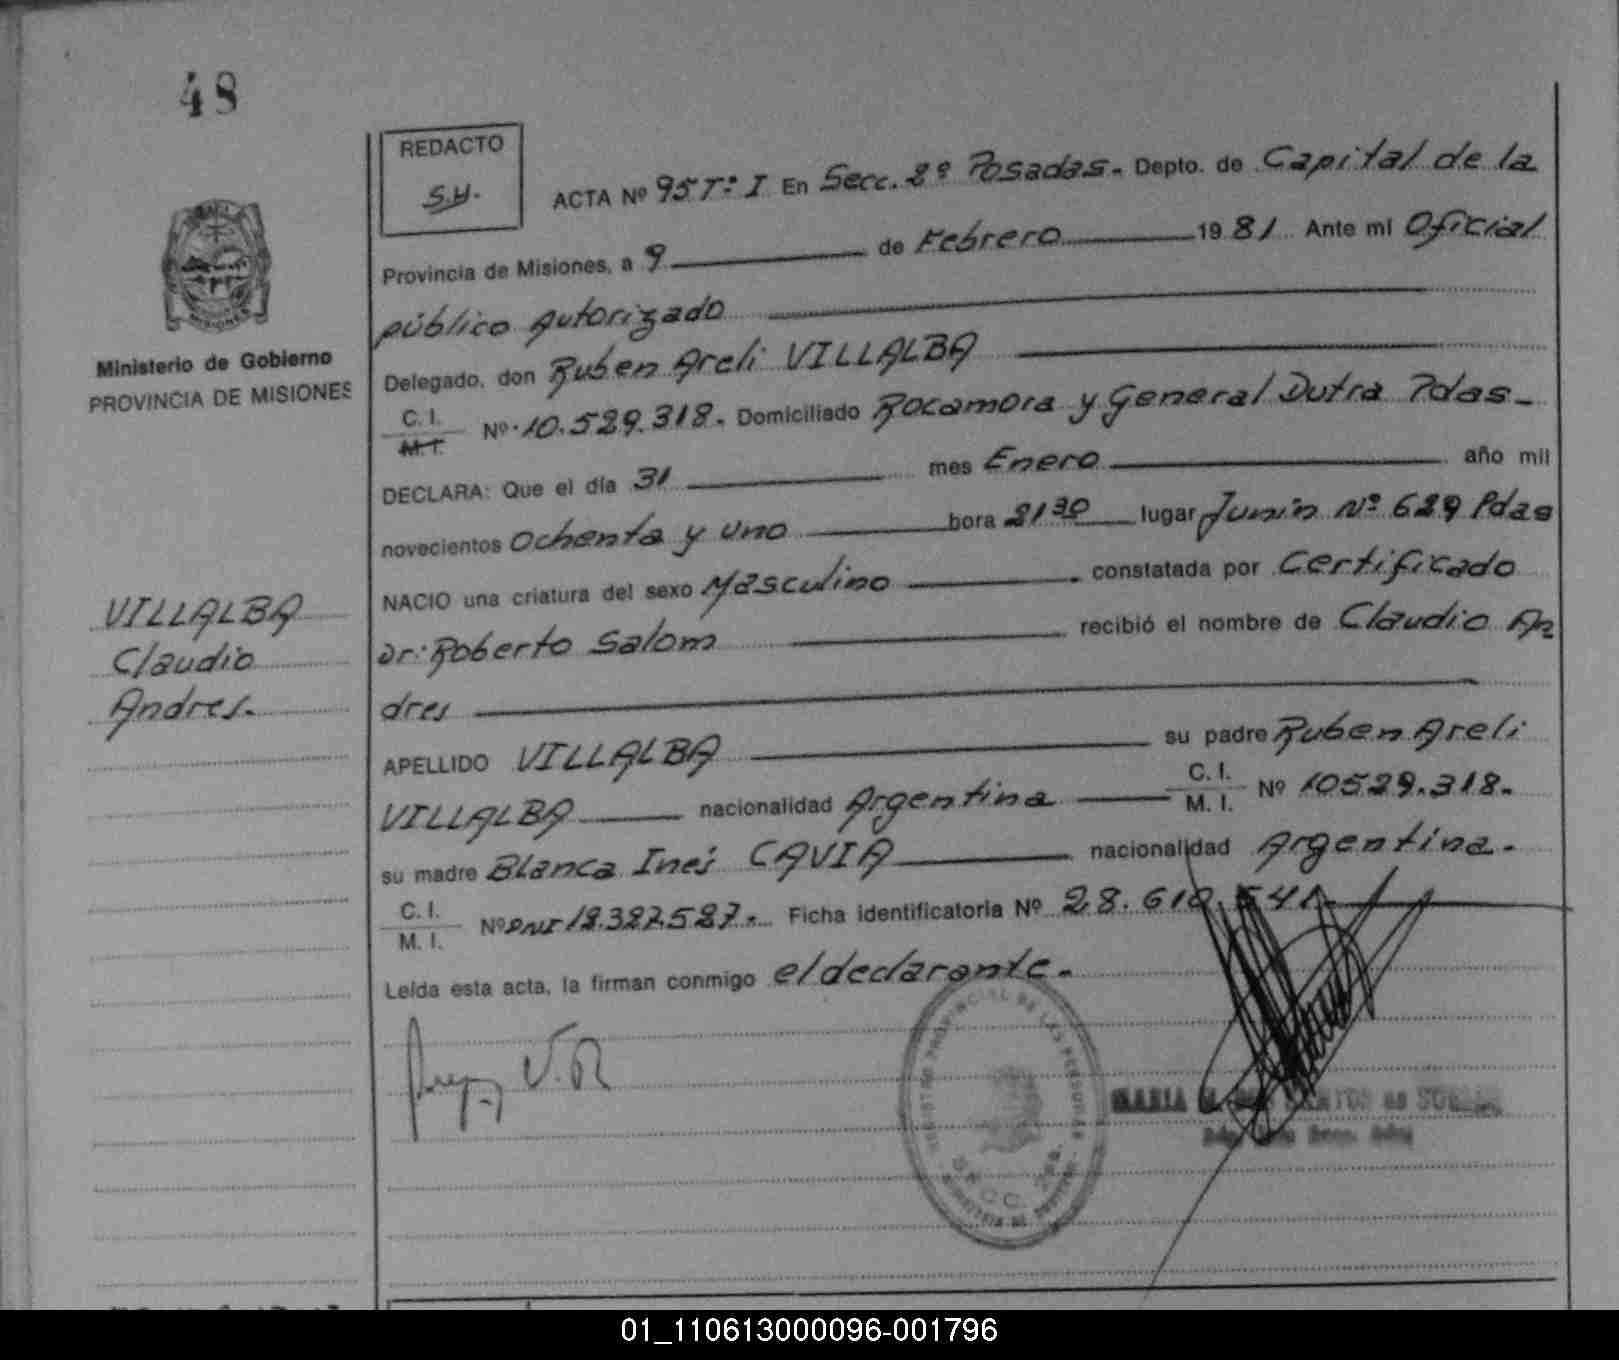 48
REDACTO
S.H.
ACTA Nº 95 Tº I En Secc. 2º Posadas.- Depto. de Capital de la
Provincia de Misiones, a 9 de Febrero 1981 Ante mi Oficial
público Autorizado
Delegado, don Ruben Areli VILLALBA
C. I.
M. I.
Nº 10.529.318. Domiciliado Rocamora y General Dutra Pdas.-
DECLARA: Que el día 31 mes Enero año mil
novecientos Ochenta y uno hora 21 30 lugar Junín Nº 629 Pdas
NACIO una criatura del sexo Masculino constatada por Certificado
Dr: Roberto Salom recibió el nombre de Claudio An
dres
APELLIDO VILLALBA su padre Ruben Areli
VILLALBA nacionalidad Argentina C. I. M. I. Nº 10529.318.
su madre Blanca Inés CAVIA nacionalidad Argentina.
C. I.
M. I.
Nº DNI Ficha identificatoria Nº 28.610.541
Leída esta acta, la firman conmigo el declarante.
Ministerio de Gobierno
PROVINCIA DE MISIONES
VILLALBA
Claudio
Andres.
V.R
REGISTRO PROVINCIAL DE LAS PERSONAS
MARIA
01_110613000096-001796